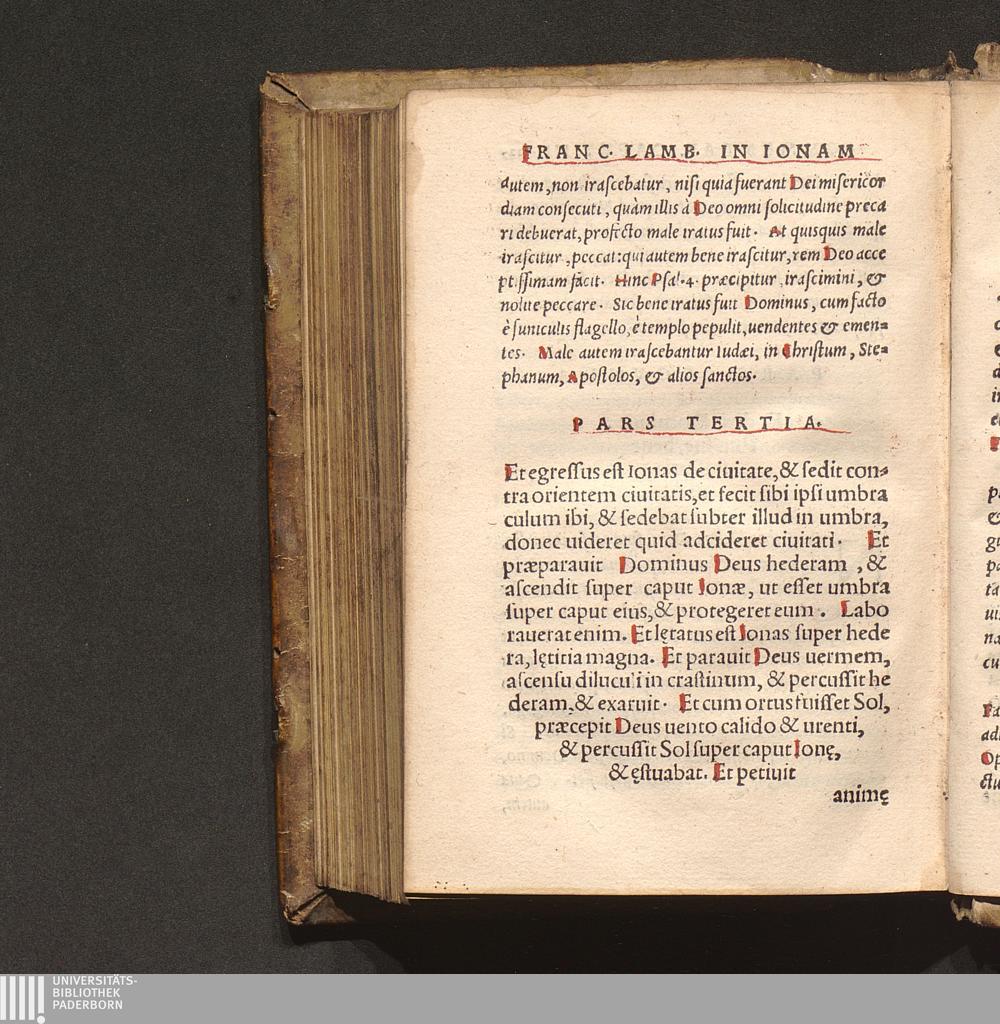 FRANC. LAMB. IN IONAM
autem, non irascebatur, nisi quia fuerant Dei misericor
diam consecuti, quàm illis à Deo omni solicitudine preca
ri debuerat, profecto male iratus fuit. At quisquis male
irascitur, peccat: qui autem bene irascitur, rem Deo acce
ptissimam facit. Hinc Psal. 4. præcipitur, irascimini, &
nolite peccare. Sic bene iratus fuit Dominus, cum facto
è funiculis flagello, è templo pepulit, uendentes & emen-
tes. Male autem irascebantur Iudæi, in Christum, Ste-
phanum, Apostolos, & alios sanctos.
PARS TERTIA.
Et egressus est Ionas de ciuitate, & sedit con-
tra orientem ciuitatis, et fecit sibi ipsi umbra
culum ibi, & sedebat subter illud in umbra,
donec uideret quid adcideret ciuitati. Et
præparauit Dominus Deus hederam, &
ascendit super caput Ionæ, ut esset umbra
super caput eius, & protegeret eum. Labo
rauerat enim. Et lętatus est Ionas super hede
ra, lętitia magna. Et parauit Deus uermem,
ascensu diluculi in crastinum, & percussit he
deram, & exaruit. Et cum ortus fuisset Sol,
præcepit Deus uento calido & urenti,
& percussit Sol super caput Ionę,
& ęstuabat. Et petiuit
animę
UNIVERSITÄTS-
BIBLIOTHEK
PADERBORN